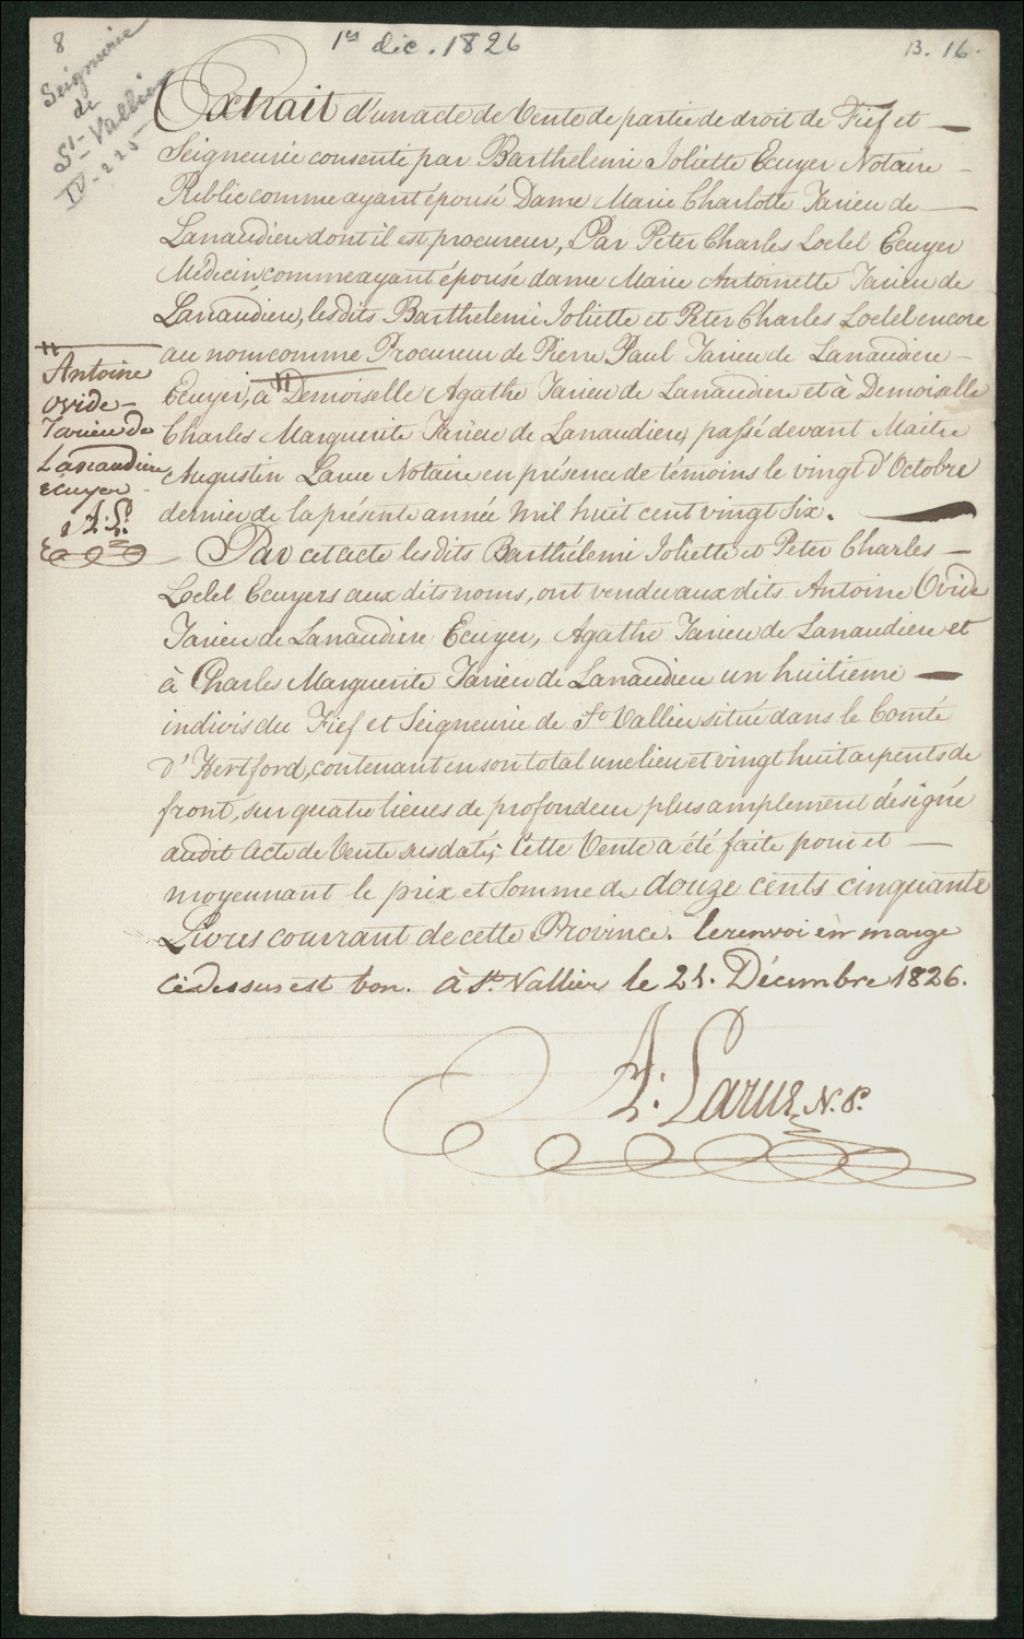 8
1er dec. 1826
B. 16.
Seigneurie
de
St-Vallier
IV-225
Extrait d'un acte de Vente de partie de droit de Fief et
Seigneurie consenti par Barthelemi Joliette Ecuyer Notaire
Public comme ayant épousé Dame Marie Charlotte Tarieu de
Lanaudiere dont il est procureur, Par Peter Charles Loedel Ecuyer
Médecin comme ayant épousé dame Marie Antoinette Tarieu de
Lanaudiere, les dits Barthelemi Joliette et Peter Charles Loedel encore
au nom comme Procureur de Pierre Paul Tarieu de Lanaudiere
Ecuyer, à # Demoiselle Agathe Tarieu de Lanaudiere et à Demoiselle
Charles Marguerite Tarieu de Lanaudiere, passé devant Maitre
Augustin Larue Notaire en présence de témoins le vingt d'Octobre
dernier de la présente année Mil huit cent vingt Six.
#
Antoine
Ovide
Tarieu de
Lanaudiere
ecuyer
A. L.
Par cet acte les dits Barthélemi Joliette et Peter Charles
Loedel Ecuyers aux dits noms, ont vendu aux dits Antoine Ovide
Tarieu de Lanaudiere Ecuyer, Agathe Tarieu de Lanaudiere et
à Charles Marguerite Tarieu de Lanaudiere un huitieme
indivis du Fief et Seigneurie de St Vallier situé dans le Comté
d'Hertford, contenant en son total une lieu et vingt huit arpents de
front, sur quatre lieues de profondeur plus amplement désigné
audit Acte de Vente susdaté; Cette Vente a été faite pour et
moyennant le prix et Somme de douze cents cinquante
Livres courrant de cette Province. le renvoi en marge
ci dessus est bon. à St. Vallier le 21. Décembre 1826.
A. Larue N. P.